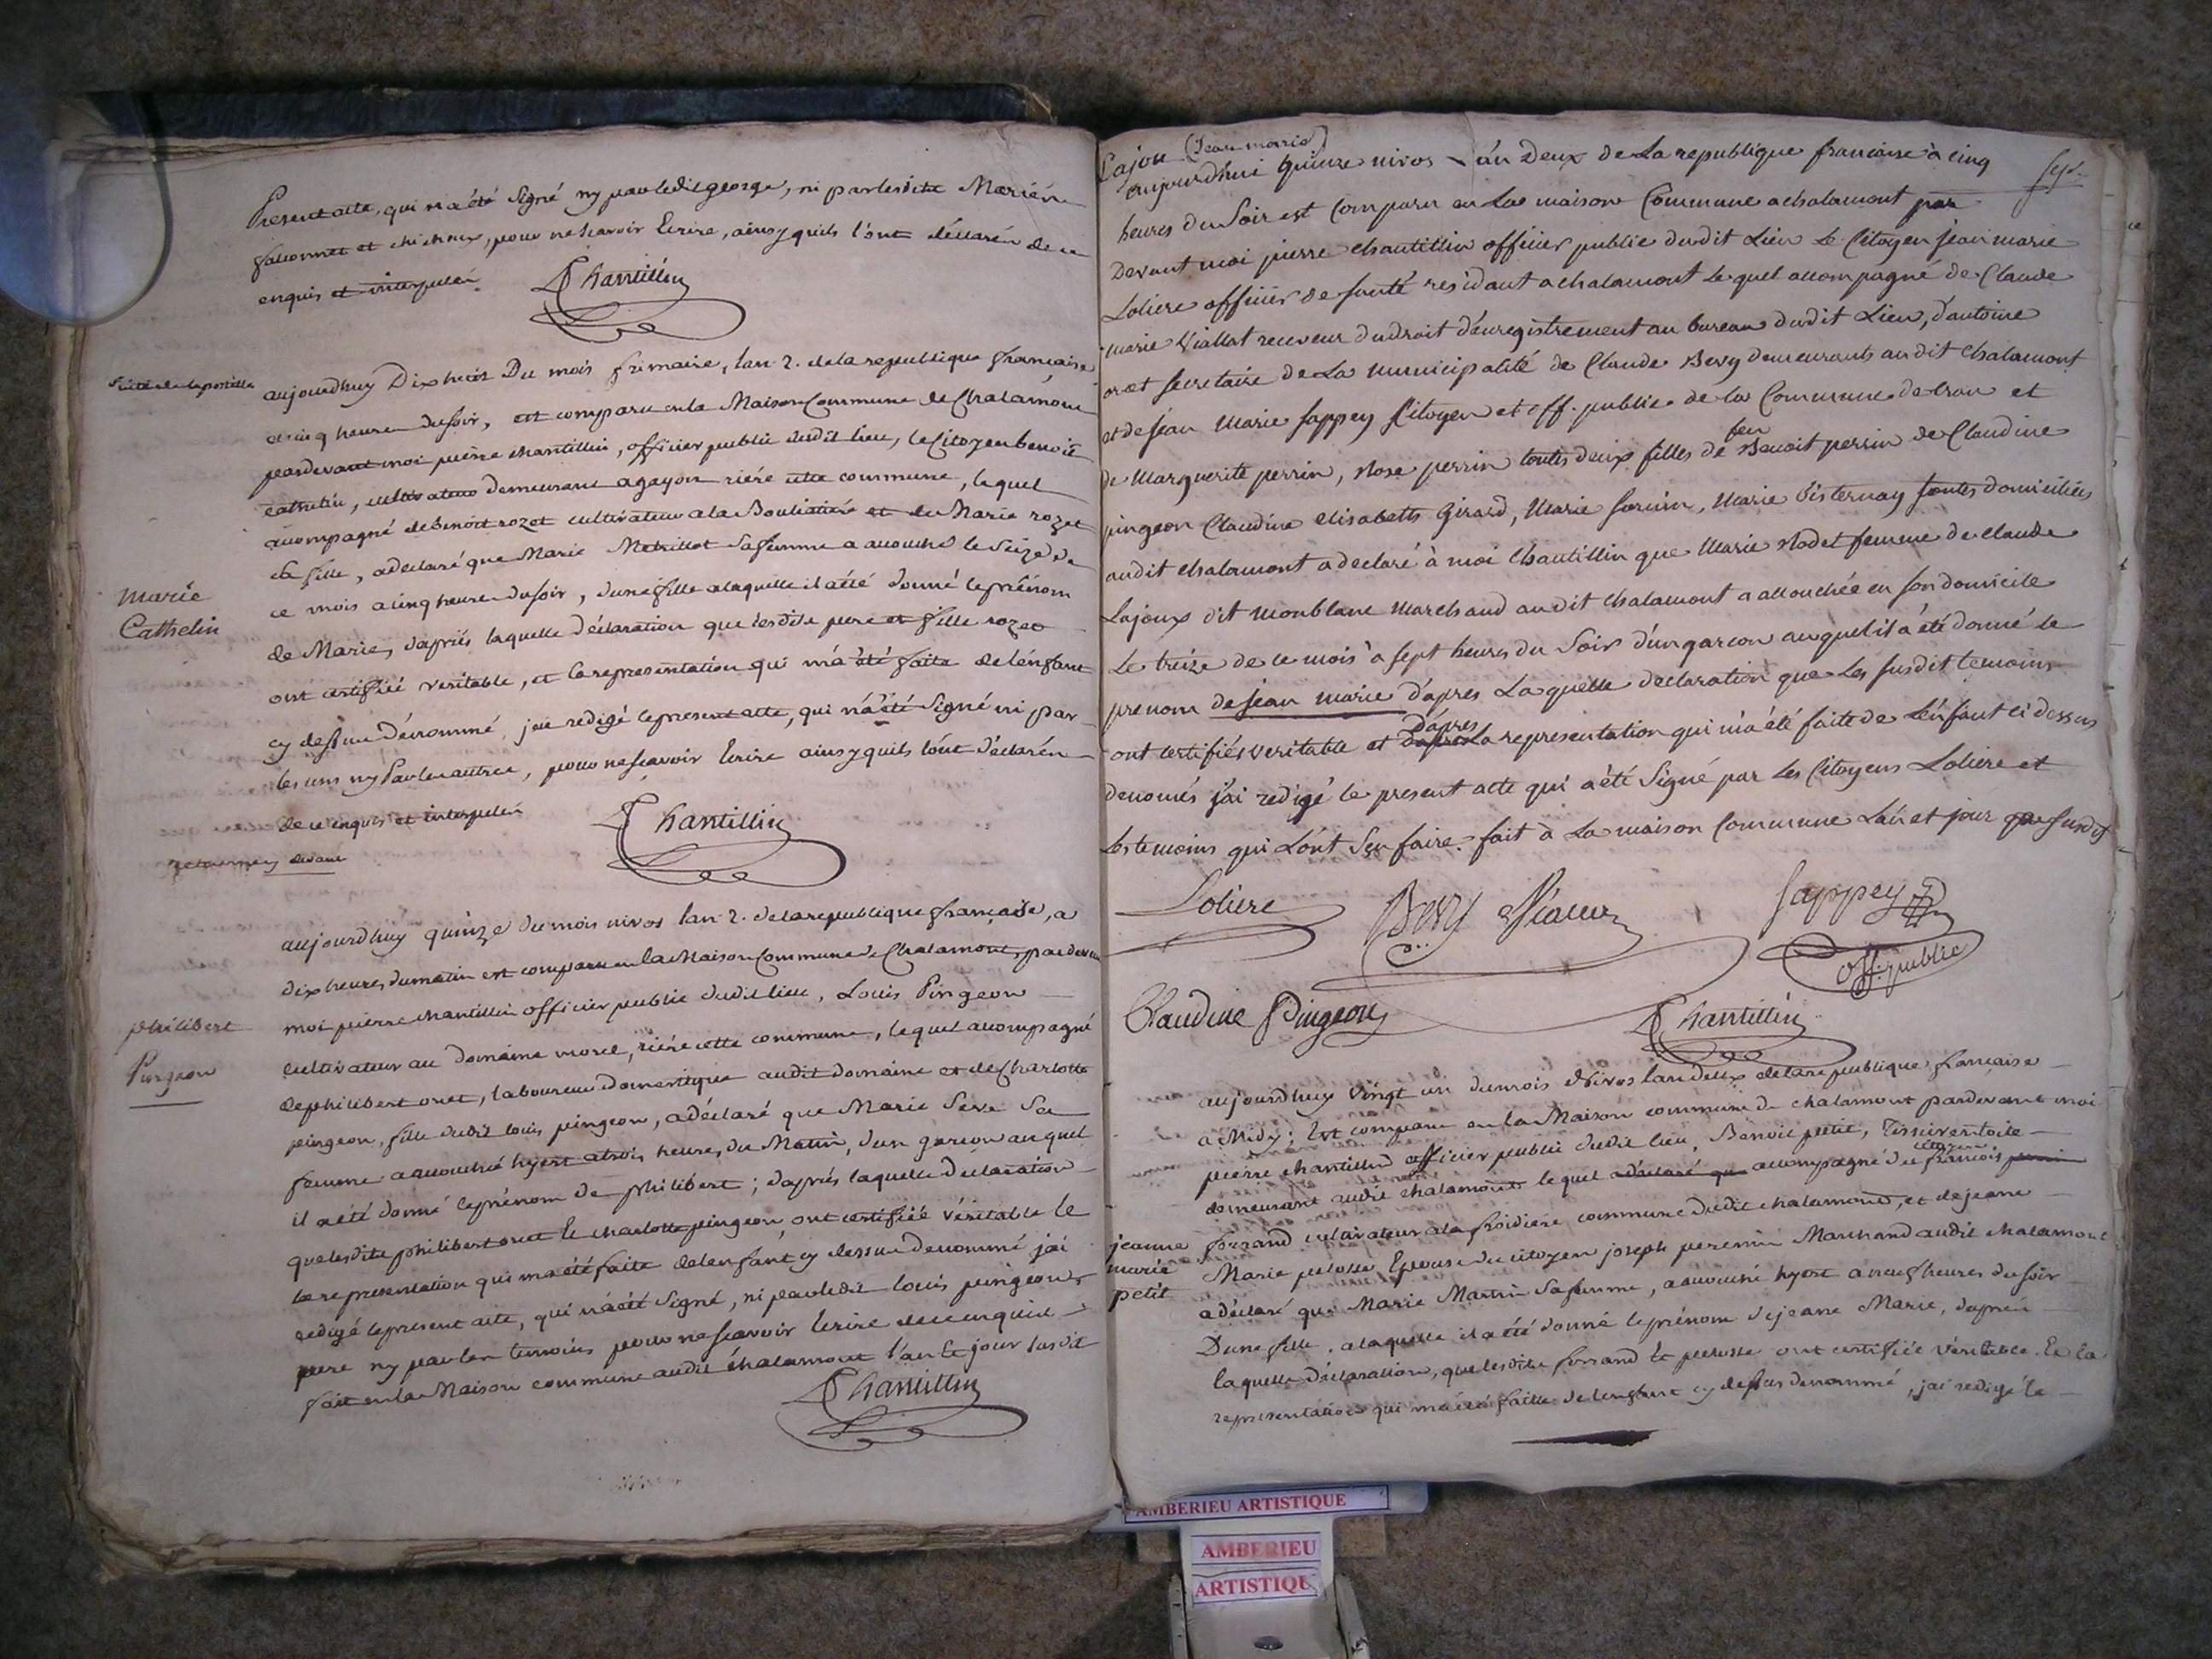 Present acte, qui n'a été Signé ny par ledit george, ni par lesdits
et chichoux, pour ne scavoir Ecrire, ainsy quils l'ont déclarén de ce
enquis et interpelén
Chantillin
aujourdhuy Dix huit Du mois frimaire, lan 2. dela republique française
a cinq heures du soir, est comparu en la Maison Commune de Chalamont
pardevant moi pierre chantillin, officier public dudit lieu, le Citoyen benoit
cathelin, cultivateur demeurant a gayon riére cette commune, lequel
accompagné de benoit rozet cultivateur a la et de Marie rozet
sa fille, a declaré que Marie Metrillot sa femme a accouché le Seize de
ce mois a cinq heures du soir, dune fille a laquelle il a été donné le prénom
de Marie, d'aprés laquelle déclaration que lesdits pere et fille rozet
ont certifiéé veritable, et la representation qui m'a été faite de lénfant
cy dessus dénommé, jai redigé le present acte, qui n'a été Signé ni par
les uns ny Par les autres, pour ne scavoir Ecrire ainsy quils lónt déclarén
de ce enquis et interpelén
Chantillin
marie
Cathelin
aujourdhuy quinze du mois nivos lan 2. de la republique française, a
dix heures du matin est comparu en la Maison Commune de Chalamont, pardevant
moi pierre chantillin officier public dudit lieu, Louis Pingeon
cultivateur au domaine morel, riére cette commune, lequel accompagné
de philibert oret, laboureur domestique audit domaine et de Charlotte
pingeon, fille dudit louis pingeon, a déclaré que Marie Seve Sa
femme a accouché hyert a trois heures du Matin, d'un garcon auquel
il a été donné le prénom de philibert; d'aprés laquelle déclaration
que lesdits philibert oret Et charlotte pingeon, ont certifiéé véritable Et
la representation qui m'a été faite de lenfant cy dessus denommé jai
redigé le present acte, qui n'a été Signé, ni par ledit louis pingeon
pere ny par les temoins pour ne scavoir Ecrire de ce enquis
fait en la Maison commune audit chalamont l'an Et jour susdit
Chantillin
philibert
Pingeon
Lajoux (Jean marie)
aujourdhui quinze nivos an deux de La republique francaise à cinq
heures du Soir est Comparu en La maison Commune a chalamont par
Devant moi pierre chantillin officier public dudit Lieu Le Citoyen jean marie
Loliere officier de santé residant a chalamont Lequel accompagné de Claude
marie Viallat receveur du droit d'enregistrement au bureau dudit Lieu, d'antoine
oret secretaire de La municipalité de Claude Bevy demeurants audit chalamont
et de jean marie sappey Citoyen et off. public de la Commune de cran et
de marguerite perrin, rose perrin toutes deux filles de feu Benoit perrin de Claudine
pingeon Claudine elisabeth Girard, Marie, Marie toutes domiciliées
audit chalamont a declaré à moi Chantillin que Marie rodet femme de claude
Lajoux dit monblanc marchand audit chalamont a accouchée en son domicile
Le treize de ce mois à sept heures du Soir d'un garcon auquel il a été donné Le
prenom de jean marie d'apres Laquelle declaration que Les susdit temoins
ont certifiés veritable et d'apres La representation qui m'a été faite de L'énfant ci dessus
denomés j'ai redigé le present acte qui a été Signé par Les Citoyens Loliere et
Les temoins qui L'ont Sçu faire. fait à La maison Commune L'an et jour que susdit
Loliere Bevy Sappey
off. public
Claudine Pingeon Chantillin
aujourdhuy vingt un du mois Nivos lan deux de la republique francaise
a Midy; Est comparu en la Maison commune de chalamont pardevant moi
pierre chantillin officier public dudit lieu, Benoit petit, Tissier en toile
demeurant audit chalamont lequel a déclaré que accompagné du citoyen francois
ferrand cultivateur a la froidiere, commune dudit chalamont, et de jeane
Marie pelosse Epouse du citoyen joseph peremin Marchand audit chalamont
a déclaré que Marie Martin Sa femme, a accouché hyert a neuf heures du soir
D'une fille, a laquelle il a été donné le prénom de jeane Marie, d'aprés
laquelle déclaration, que lesdits ferrand Et pelosse ont certifiéé véritable. Et la
representation qui m'a été faitte de lenfant cy dessus denommé, jai redigé le
jeanne
marie
petit
AMBERIEU ARTISTIQUE
AMBERIEU
ARTISTIQUE